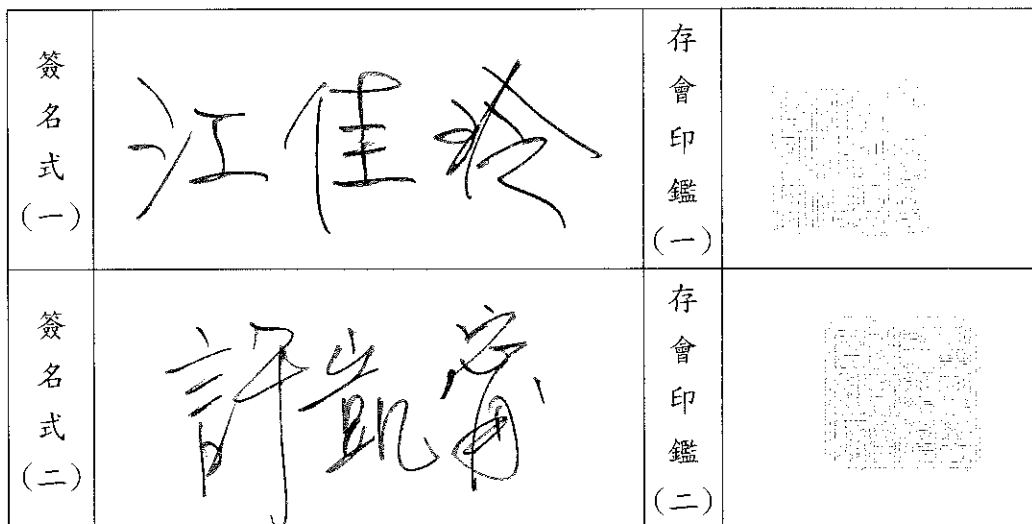 簽名式(一)
江佳玲
存會印鑑(一)
簽名式(二)
許凱甯
存會印鑑(二)